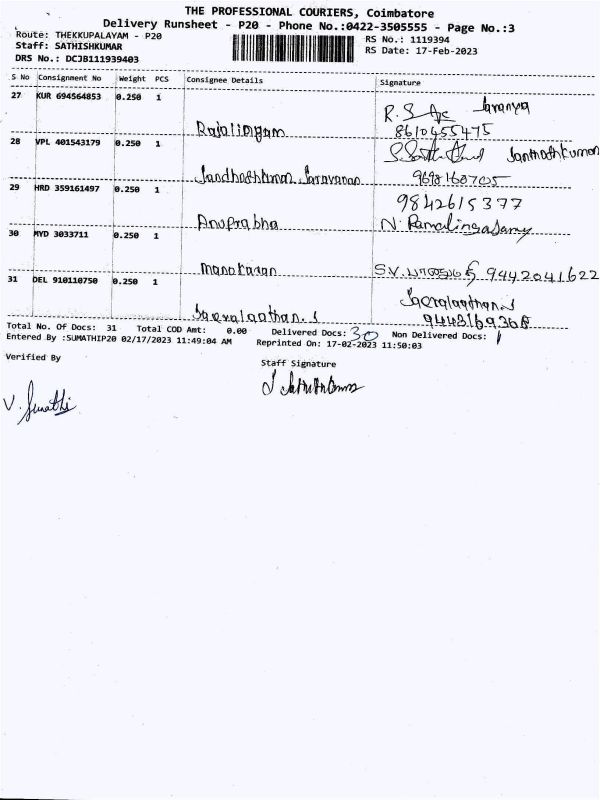 THE PROFESSIONAL COURIERS, Coimbatore
Delivery Runsheet - P20 - Phone No.:0422-3505555 - Page No.:3
Route: THEKKUPALAYAM - P20
RS No.: 1119394
Staff: SATHISHKUMAR
RS Date: 17-Feb-2023
DRS No.: DCJB111939403
S No Consignment No Weight PCS Consignee Details Signature
27 KUR 694564853 0.250 1
Saranya
Rajalingam 8610455475
28 VPL 401543179 0.250 1 Santhoshkumar
Sandhoshkumar Saravanan 9698168705
29 HRD 359161497 0.250 1 9842615377
Anuprabha N. Ramalingasamy
30 MYD 3033711 0.250 1
Manokaran S.V. 9442041622
31 DEL 910110750 0.250 1
9443169368
Total No. Of Docs: 31 Total COD Amt: 0.00 Delivered Docs: 30 Non Delivered Docs: 1
Entered By :SUMATHIP20 02/17/2023 11:49:04 AM Reprinted On: 17-02-2023 11:50:03
Verified By
Staff Signature
V. Sumathi